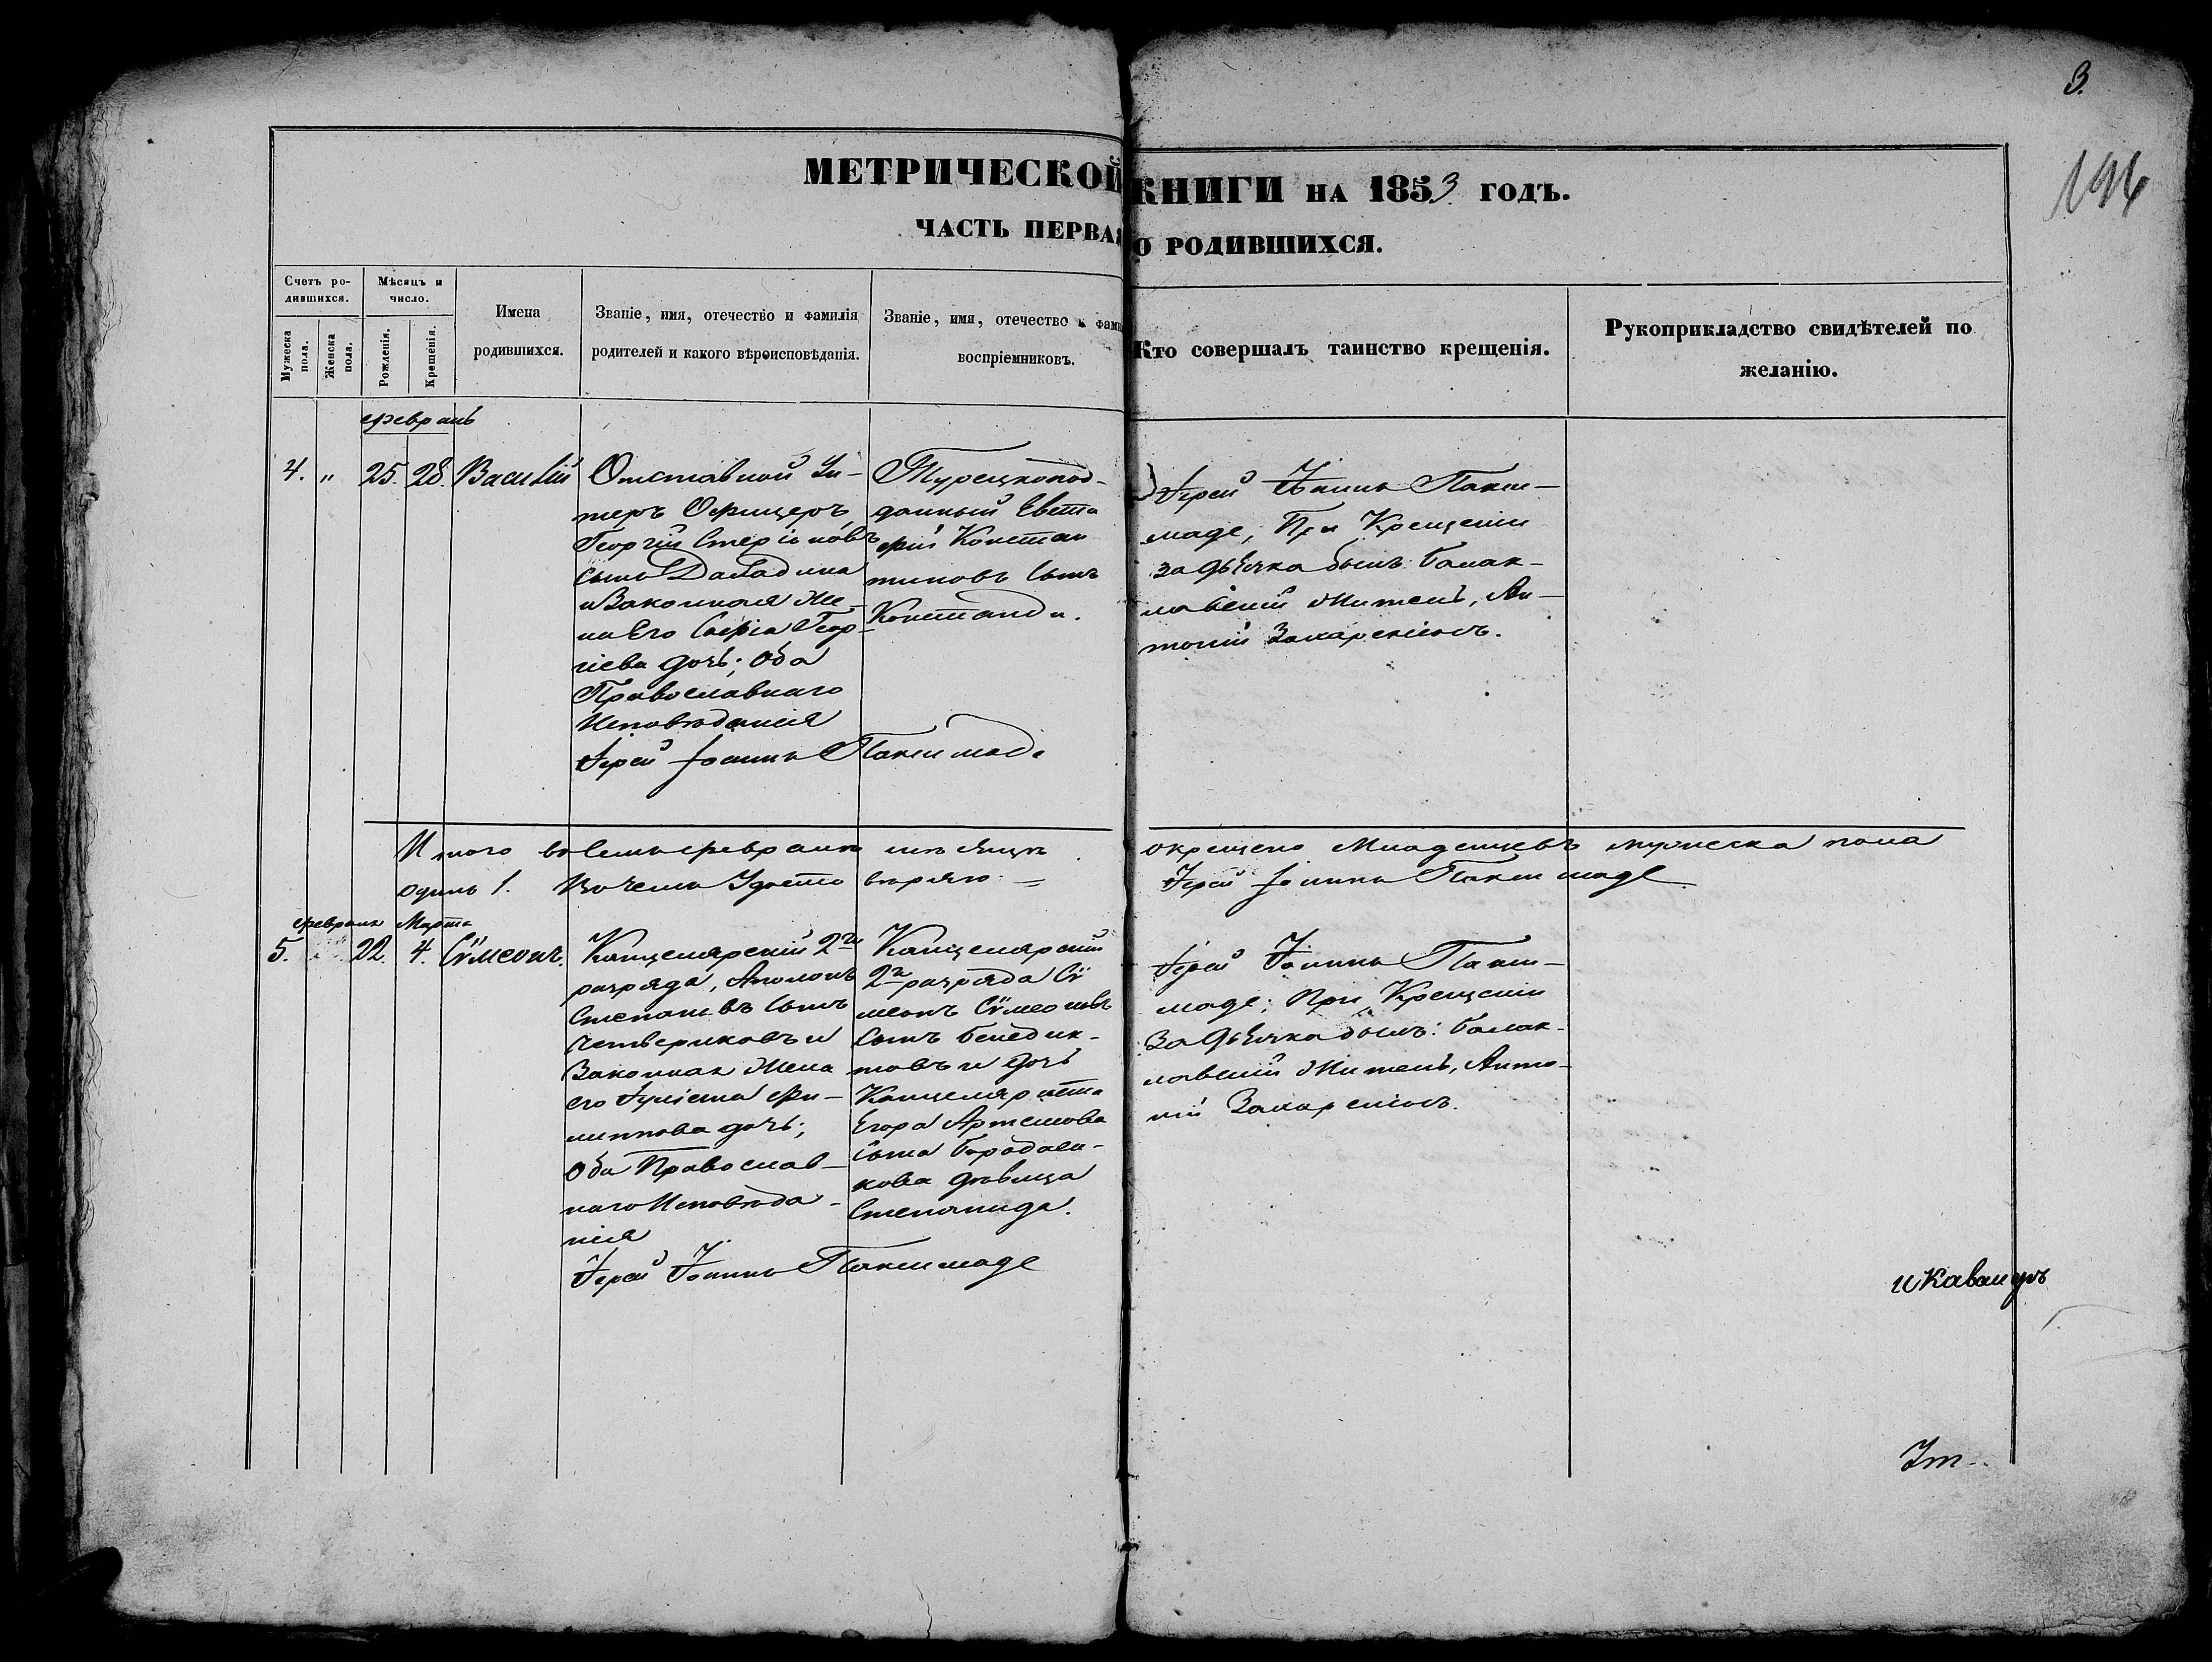 3.
196
МЕТРИЧЕСКОЙ КНИГИ НА 1853 ГОДЪ.
ЧАСТЬ ПЕРВАЯ О РОДИВШИХСЯ.
Счетъ родившихся.
Мужеска пола.
Женска пола.
Мѣсяцъ и число.
Рожденія.
Крещенія.
Имена
родившихся.
Званіе, имя, отечество и фамилія
родителей и какого вѣроисповѣданія.
Званіе, имя, отечество и фами
воспріемниковъ.
Кто совершалъ таинство крещенія.
Рукоприкладство свидѣтелей по
желанію.
Февраль
4. " 25. 28. Василій
Отставной Ун-
теръ Офицеръ
Георгій Стеріановъ
сынъ
и Законная Же-
на Его Софія Геор-
гіева дочь; Оба
Православнаго
Исповѣданія
Іерей Іоаннъ Паксимаде
Турецкопод-
данный Евста
фій Констан
тиновъ Сынъ
Констанди.
Іерей Іоаннъ Пакси-
маде, При Крещеніи
за дьячка былъ: Балак-
лавскій Житель, Ан-
тоній
Итого въ семъ Февралѣ мѣсяцѣ окрещено Младенцевъ мужеска пола
одинъ 1. Въ чемъ Удостовѣряю: Іерей Іоаннъ Паксимаде
Февраля Марта
5. 22. 4. Сѵмеонъ.
Канцелярскій 2го
разряда, Аполонъ
Степановъ Сынъ
Четвериковъ и
Законная Жена
его Іуліана Фи-
липпова дочь;
Оба Православ-
наго Исповѣда-
нія
Іерей Іоаннъ Паксимаде
Канцелярскій
2го разряда Сѵ
меонъ Сѵмеоновъ
Сынъ Бенедик-
товъ и дочь
Канцеляриста
Егора Артемова
сына
кова дѣвица
Степанида.
Іерей Іоаннъ Пакси-
маде; При Крещеніи
За дьячка былъ: Балак-
лавскій Житель, Анто-
ній